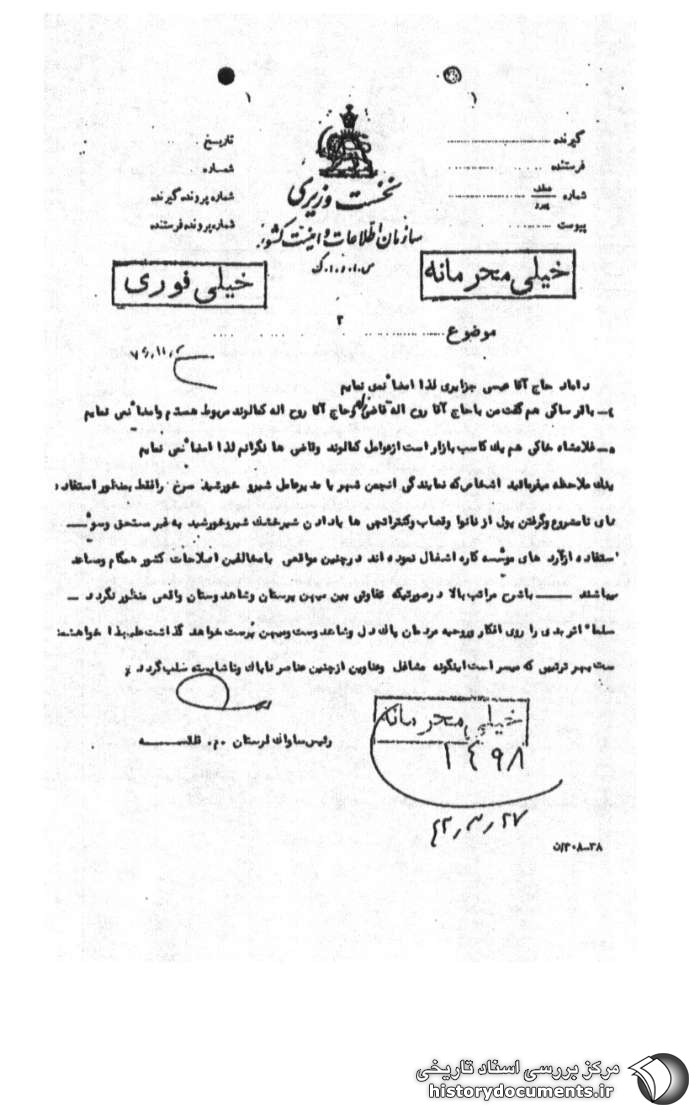 گیرنده
فرستنده
شماره
پیوست
تاریخ
شماره
شماره پرونده گیرنده
شماره پرونده فرستنده
نخست وزیری
سازمان اطلاعات و امنیت کشور
س.ا.و.ا.ک
خیلی محرمانه
خیلی فوری
۲
موضوع
داماد حاج آقا عیسی جزایری لذا امضا نمی نمایم
۴ـ باقر ساکی هم گفت من با حاج آقا روح اله قاضی و حاج آقا روح اله کمالوند مربوط هستم و امضا نمی نمایم
۵ـ غلامشاه خاکی هم یک کاسب بازار است از عوامل کمالوند و قاضی ها نگرانم لذا امضا نمی نمایم
ملاحظه میفرمائید اشخاص که نمایندگی انجمن شهر یا مدیر عامل شیر و خورشید سرخ را فقط بمنظور استفاده
های نامشروع و گرفتن پول از نانوا و قصاب و کنتراتچی ها یا دادن شیر خشک شیر و خورشید به غیر مستحق و سوء
استفاده از آرد های موسسه کاره اشغال نموده اند در چنین مواقعی با مخالفین اصلاحات کشور همگام و مساعد
میباشند ـ با شرح مراتب بالا در صورتیکه تفاوتی بین میهن پرستان و شاهدوستان واقعی منظور نگردد ـ
مسلما اثر بدی را روی افکار و روحیه مردمان پاک دل و شاهدوست و میهن پرست خواهد گذاشت علیهذا خواهشمند
ست بهر ترتیبی که میسر است اینگونه مشاغل و عناوین از چنین عناصر ناپاک و ناشایسته سلب گردد
رئیس ساواک لرستان .م.
خیلی محرمانه
۱۴۹۸
۴۲٫۳٫۲۷
مرکز بررسی اسناد تاریخی
historydocuments.ir